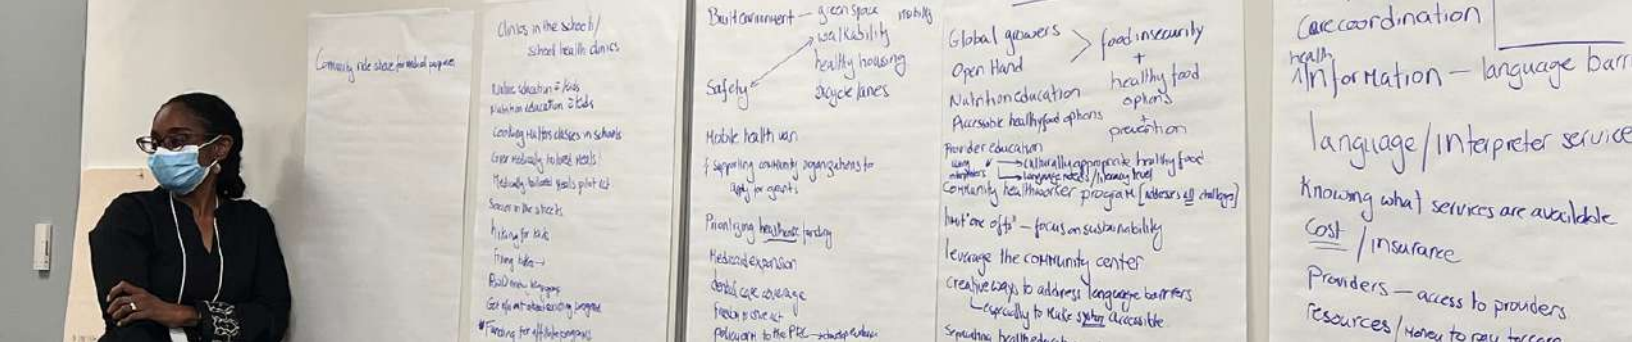 Community ride share for medical purposes
Clinics in the schools/
school health clinics
Native education = kids
Nutrition education = kids
Cooking classes in schools
Medically tailored meals pilot act
Soccer in the streets
hiking for kids
Funding for affiliate programs
Built environment — green space
walkability
healthy housing
bicycle lanes
Safety
Mobile health van
supporting community organizations to
apply for grants
Prioritizing healthcare funding
Medicaid expansion
dental care coverage
Global growers > food insecurity
+
Open Hand
healthy food
options
+
prevention
Nutrition education
Accessible healthy food options
Provider education
culturally appropriate healthy food
language needs/literacy level
Community healthworker program [addresses all challenges]
limit "one offs" — focus on sustainability
leverage the community center
creative ways to address language barriers
especially to make system accessible
Care coordination
health
information — language barri
language/interpreter service
Knowing what services are available
Cost / insurance
Providers — access to providers
resources/money to pay for care